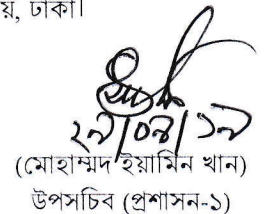 য়, ঢাকা।
(মোহাম্মদ ইয়ামিন খান)
উপসচিব (প্রশাসন-১)